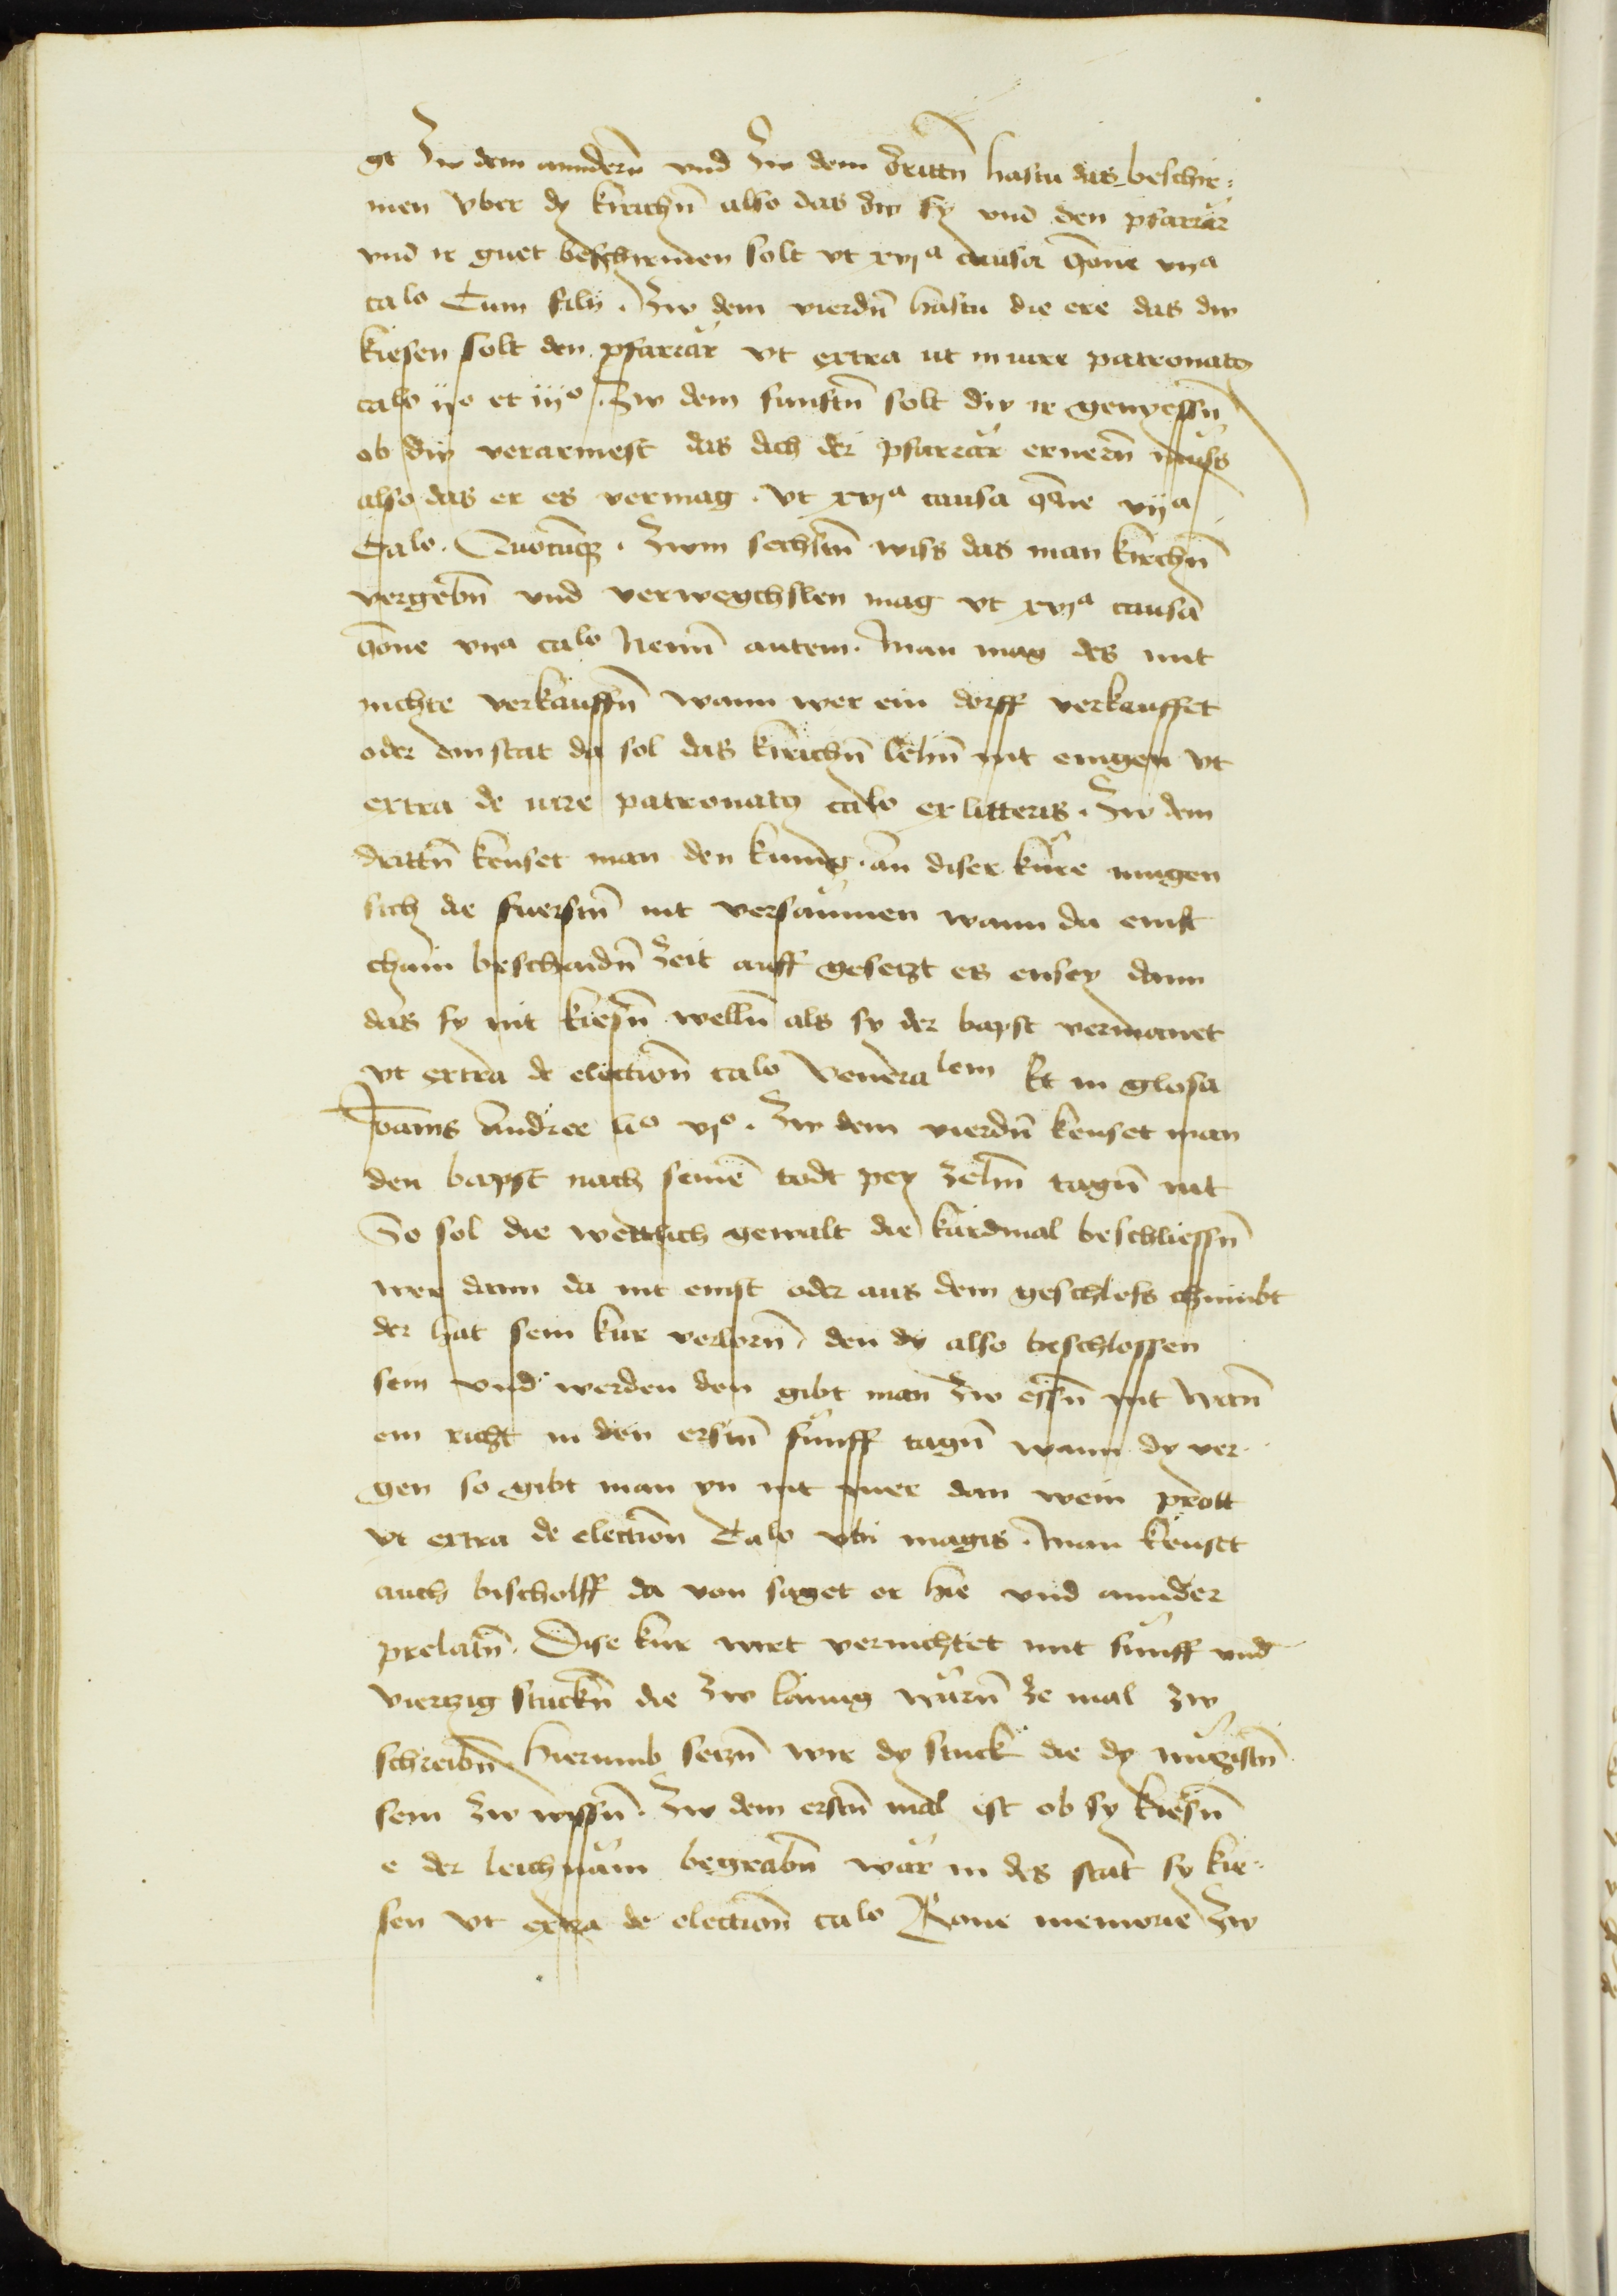 ge Zw dem anndern̄ vnd Zw dem drittn̄ hastu das beschir=
men vber dy kirichn̄ also das dw sy vnd den pfarrär
vnd ir guet beschirmen solt vt xvjᵃ causa qōne vijᵃ
caᵒ Cum filij . Zw dem vierdn̄ hastu die ere das dw
kiesen solt den pfarrär vt extra ut in iure patronatꝯ
caᵒ ijᵒ et iijᵒ . Zw dem funftn̄ solt dw ir genyessn̄
ob dw verarmest das dich der pfarrär ernern̄ müss
also das er es vermag . vt xvjᵃ causa qōne vijᵃ
Caᵒ . Quocūqꝫ . Zwm sechstn̄ wiss das man kirchn̄
vergebn̄ vnd verwegchslen mag vt xvjᵃ causa
qōne vijᵃ caᵒ Nemī autem . Man mag des mit
nichte verkauffn̄ wann wer ein dorff verkauffet
oder ein stat da sol das kirichn̄ lehn̄ nit engen vt
extra de iure patronatꝯ caᵒ ex litteris . Zw dem
drittn̄ keuset man den kunig . an diser küre mugen
sich die fuerstn̄ nit versaümen wann da enist
chain beschaidn̄ Zeit auff gesetzt es ensey dann
das sy nit kiesn̄ welln̄ als sy der bapst vermanet
vt extra de election̄ caᵒ Veneraˡᵉᵐ Et in glosa
Joānis Andree liᵒ vjᵒ . Zw dem vierdn̄ keuset man
den bapst nach seinē todt pey zehn̄ tagn̄ nit
So sol die wertlich gewalt die kardinal beschliessn̄
wer dann da nit enist oder aus dem geschloss chumbt
der hat sein kur verlorn̄ / den dy also beschlossen
sein vnd werden den gibt man Zw essn̄ nit wan̄
ein richt in den erstn̄ fünff tagn̄ wann dy ver=
gen so gibt man yn nit mer dan wein prott
vt extra de election̄ Caᵒ vbi magis . Man keuset
auch bischolff da von saget er hie vnd annder
prelatn̄ . Dise kur wirt vernichtet mit fünff vnd
viertzig stuckn̄ die Zw lanng wärn̄ ze mal zw
schreibn̄ . hierumb setzn̄ wir dy stuck die dy nützistn̄
sein Zw wissn̄ . Zw dem erstn̄ mal ist ob sy kiesn̄
e der leichnäm begrabn̄ wär in des stat sy kie=
sen vt extra de election̄ caᵒ Bone memorie Zw